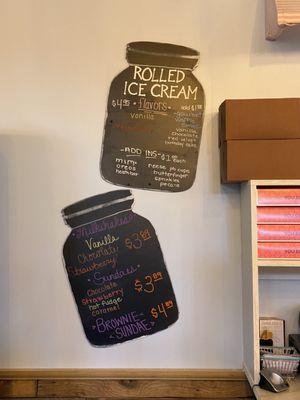 ROLLED
ICE CREAM
$4.95 flavors add $1
Vanilla
vanilla
chocolate
red velvet
birthday cake
-ADD INS- $1.00 each
m&m reese pb cups
oreos butterfinger
heathbar sprinkles
pecans
Milkshakes
Vanilla
Chocolate $3.99
Strawberry
Sundaes
Chocolate
Strawberry $3.99
hot fudge
caramel
BROWNIE $4.99
SUNDAE